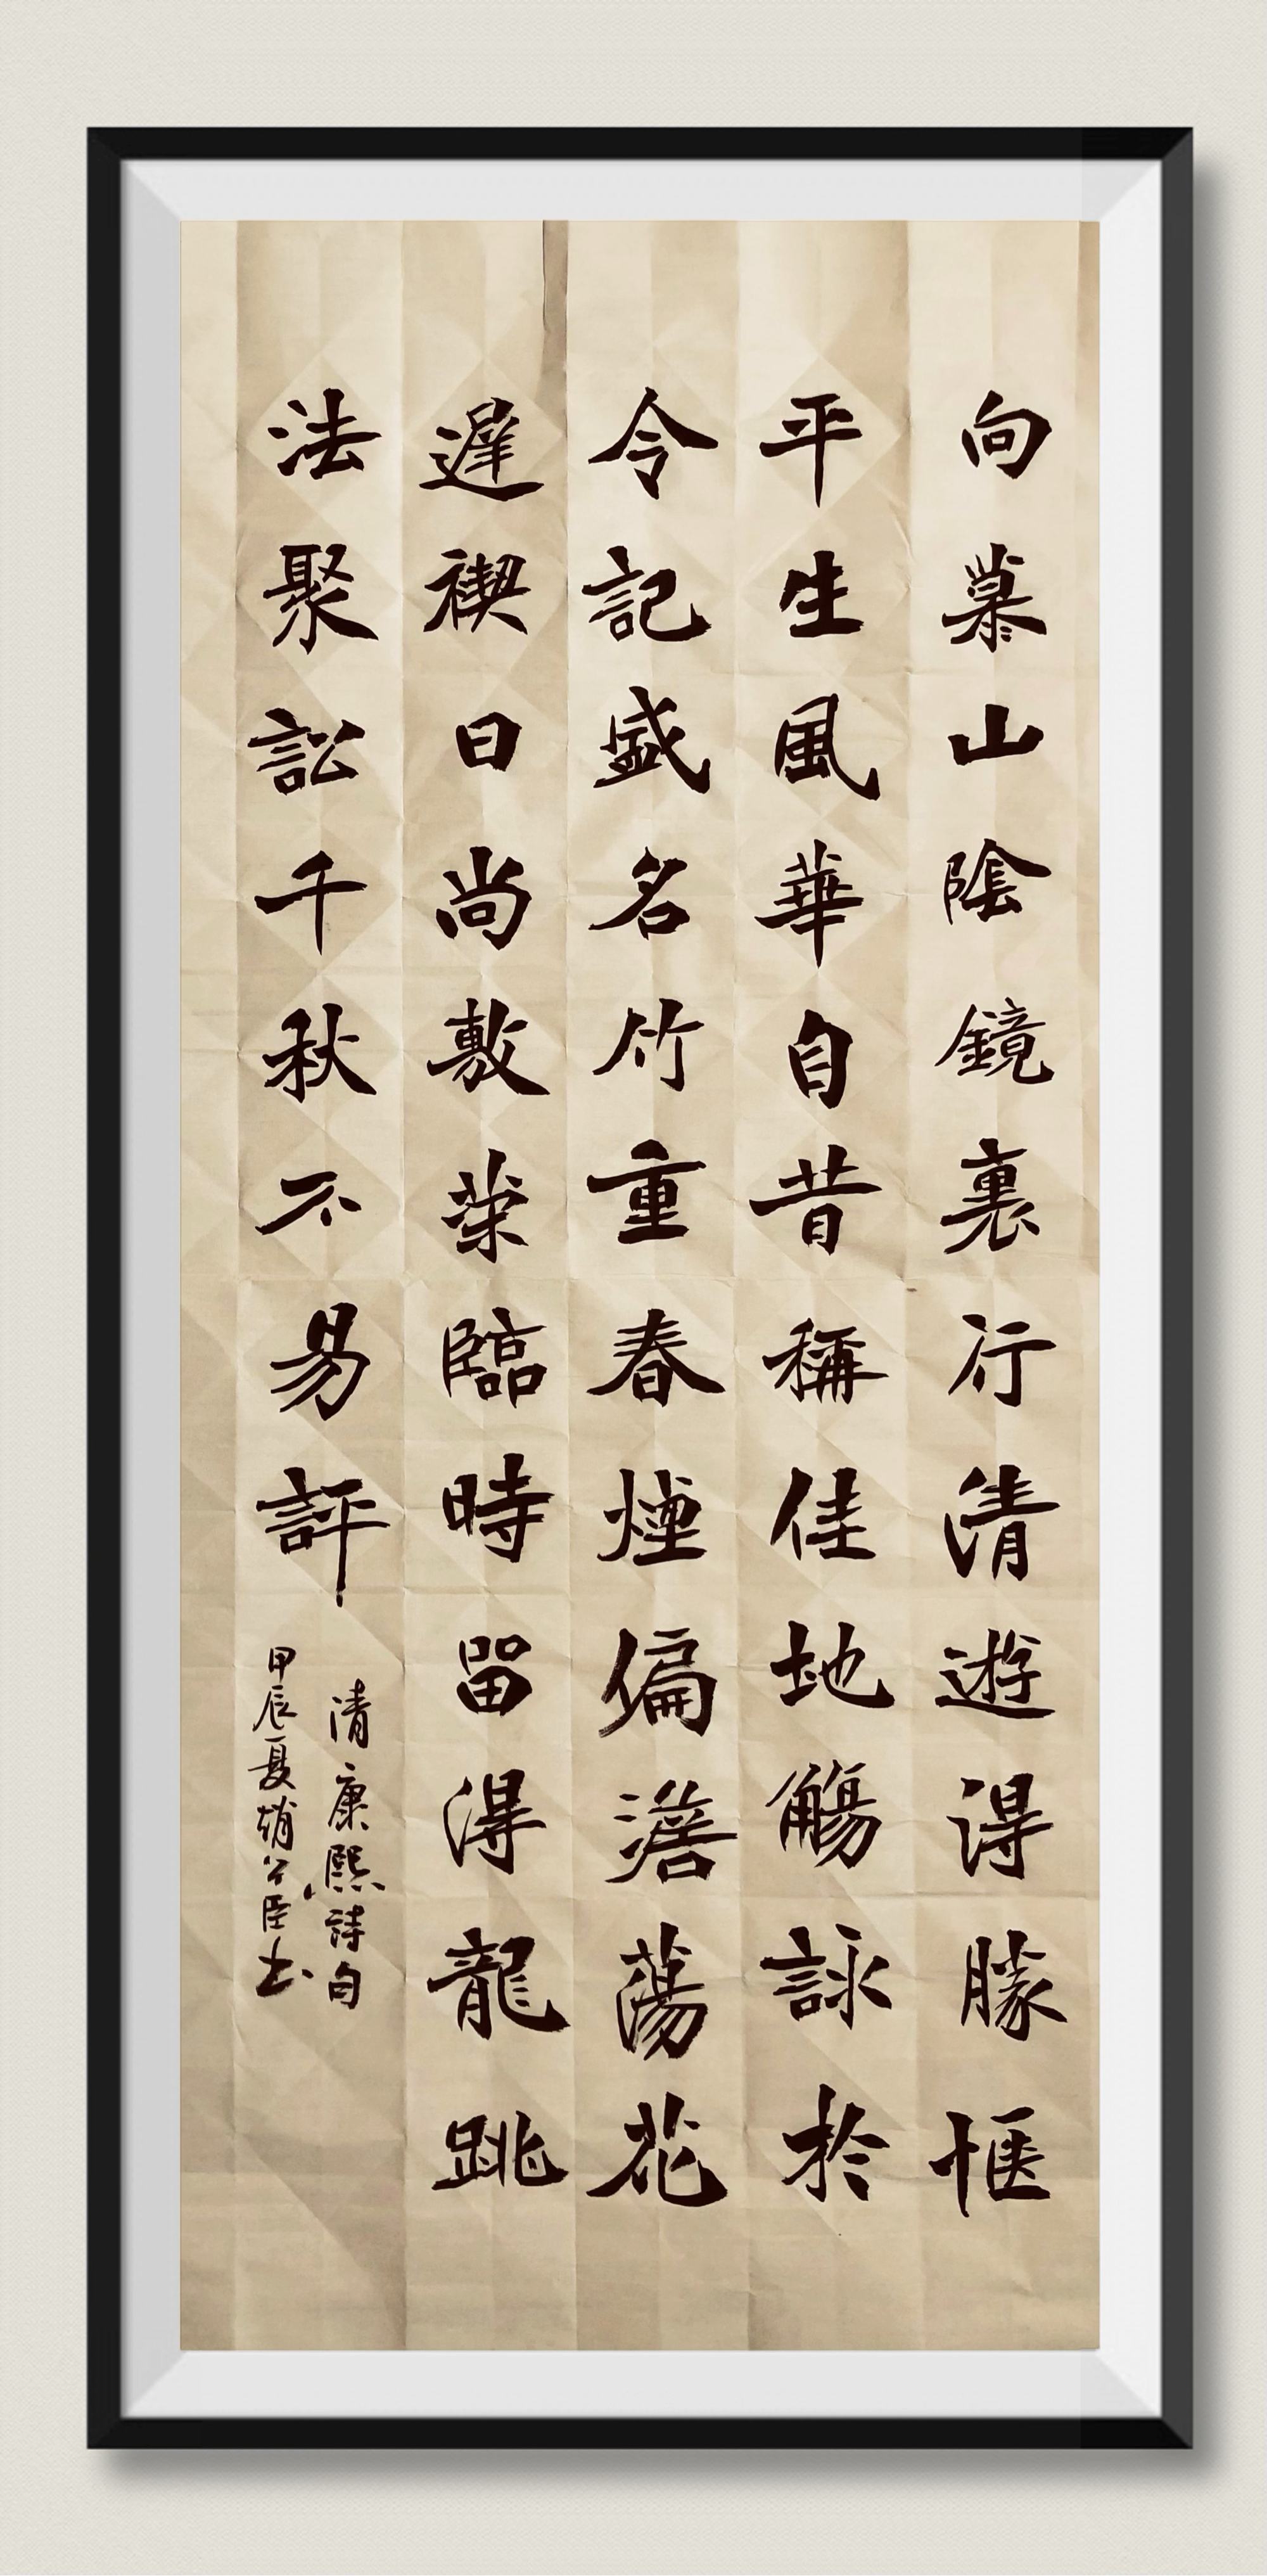 向慕山陰鏡裏行清遊得勝愜
平生風華自昔稱佳地觴詠於
令記盛名竹重春煙偏澹蕩花
遲禊日尚敷榮臨時留得龍跳
法聚訟千秋不易評
清康熙詩句
甲辰夏臣书